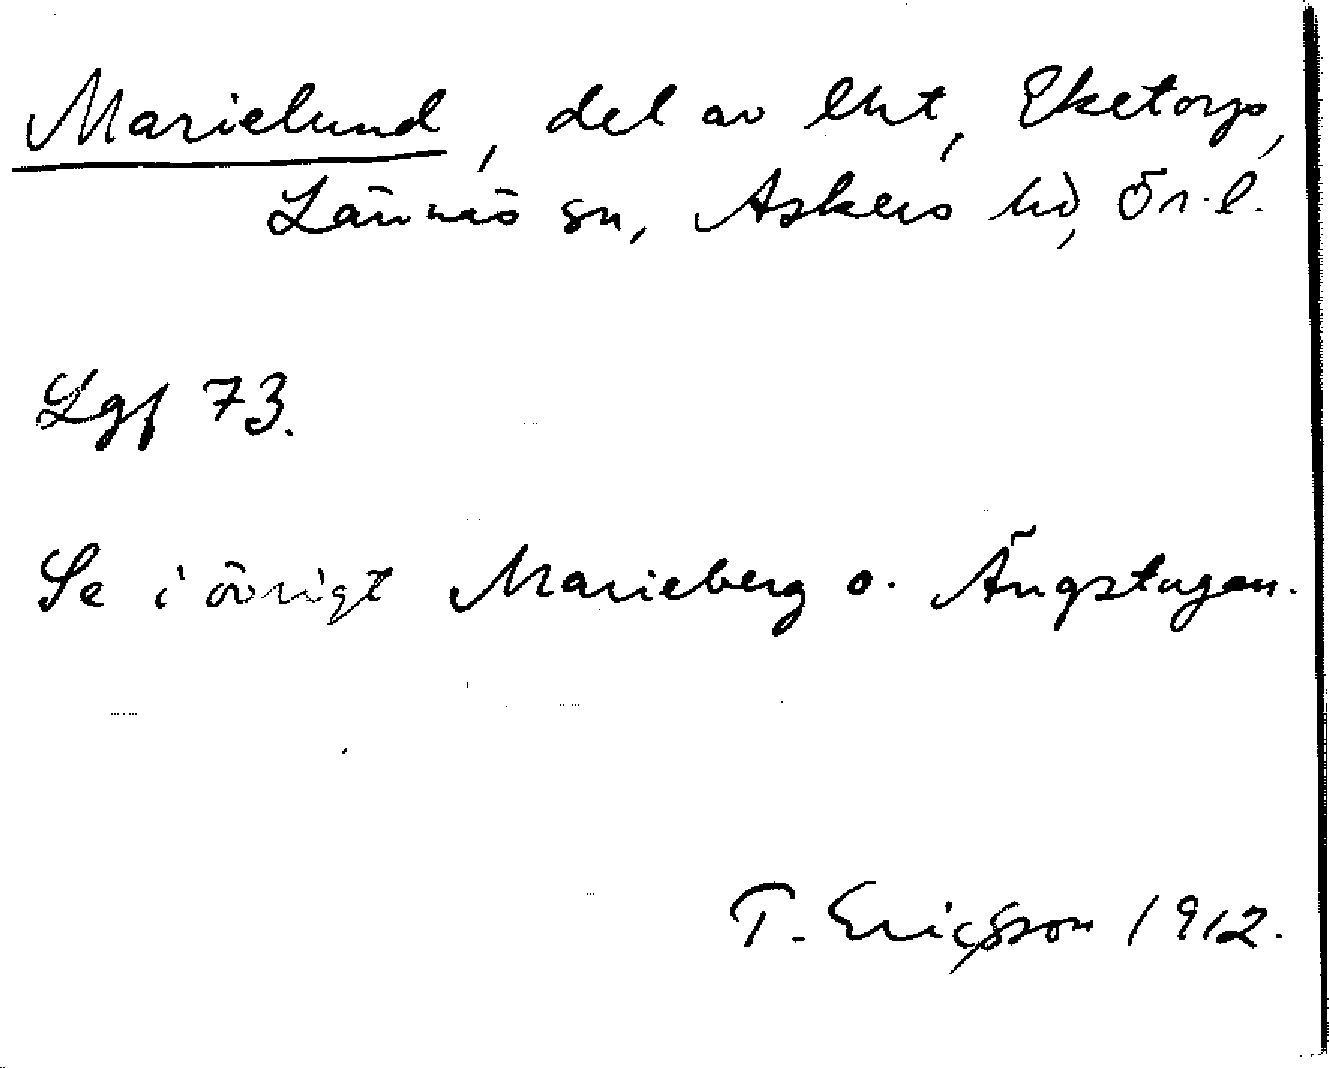 Marielund, del av lht, Eketorp,
Lännäs sn, Askers hd, Ör. l.
Lgf 73.
Se i övrigt Marieberg o. Ängstugan.
T. Ericsson 1912.